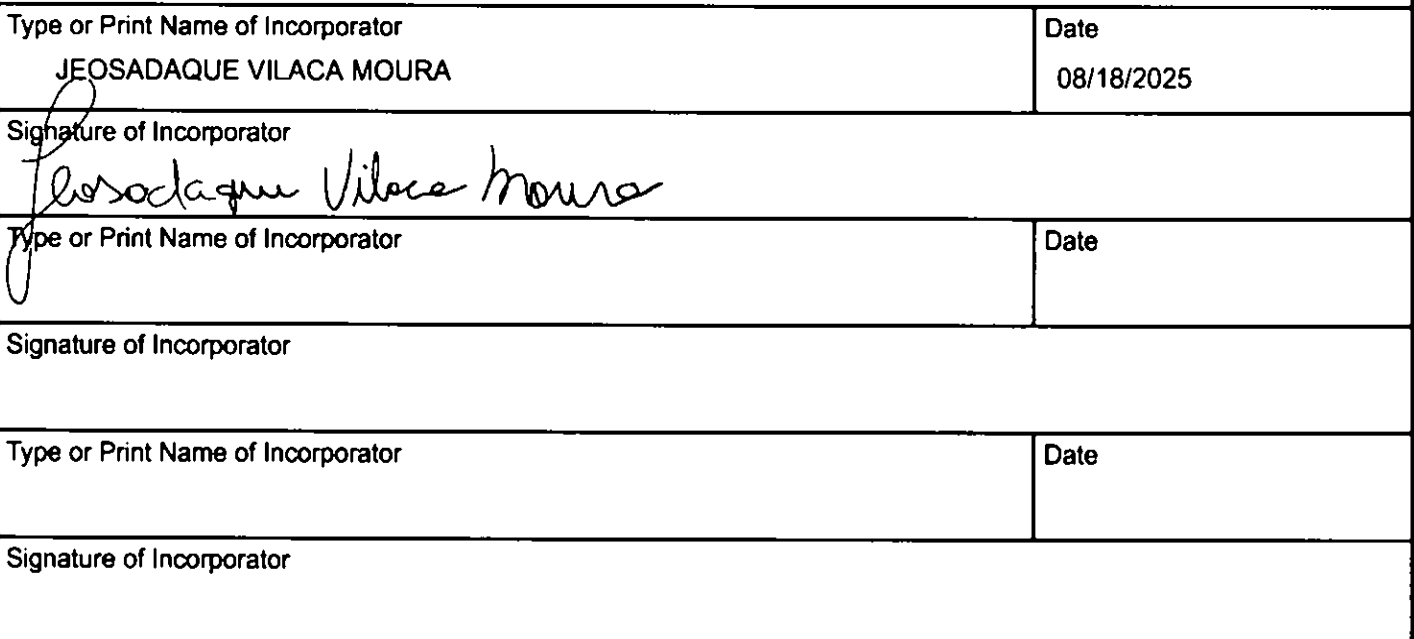 Type or Print Name of Incorporator Date
JEOSADAQUE VILACA MOURA 08/18/2025
Signature of Incorporator
Jeosadaque Vilaca Moura
Type or Print Name of Incorporator Date
Signature of Incorporator
Type or Print Name of Incorporator Date
Signature of Incorporator